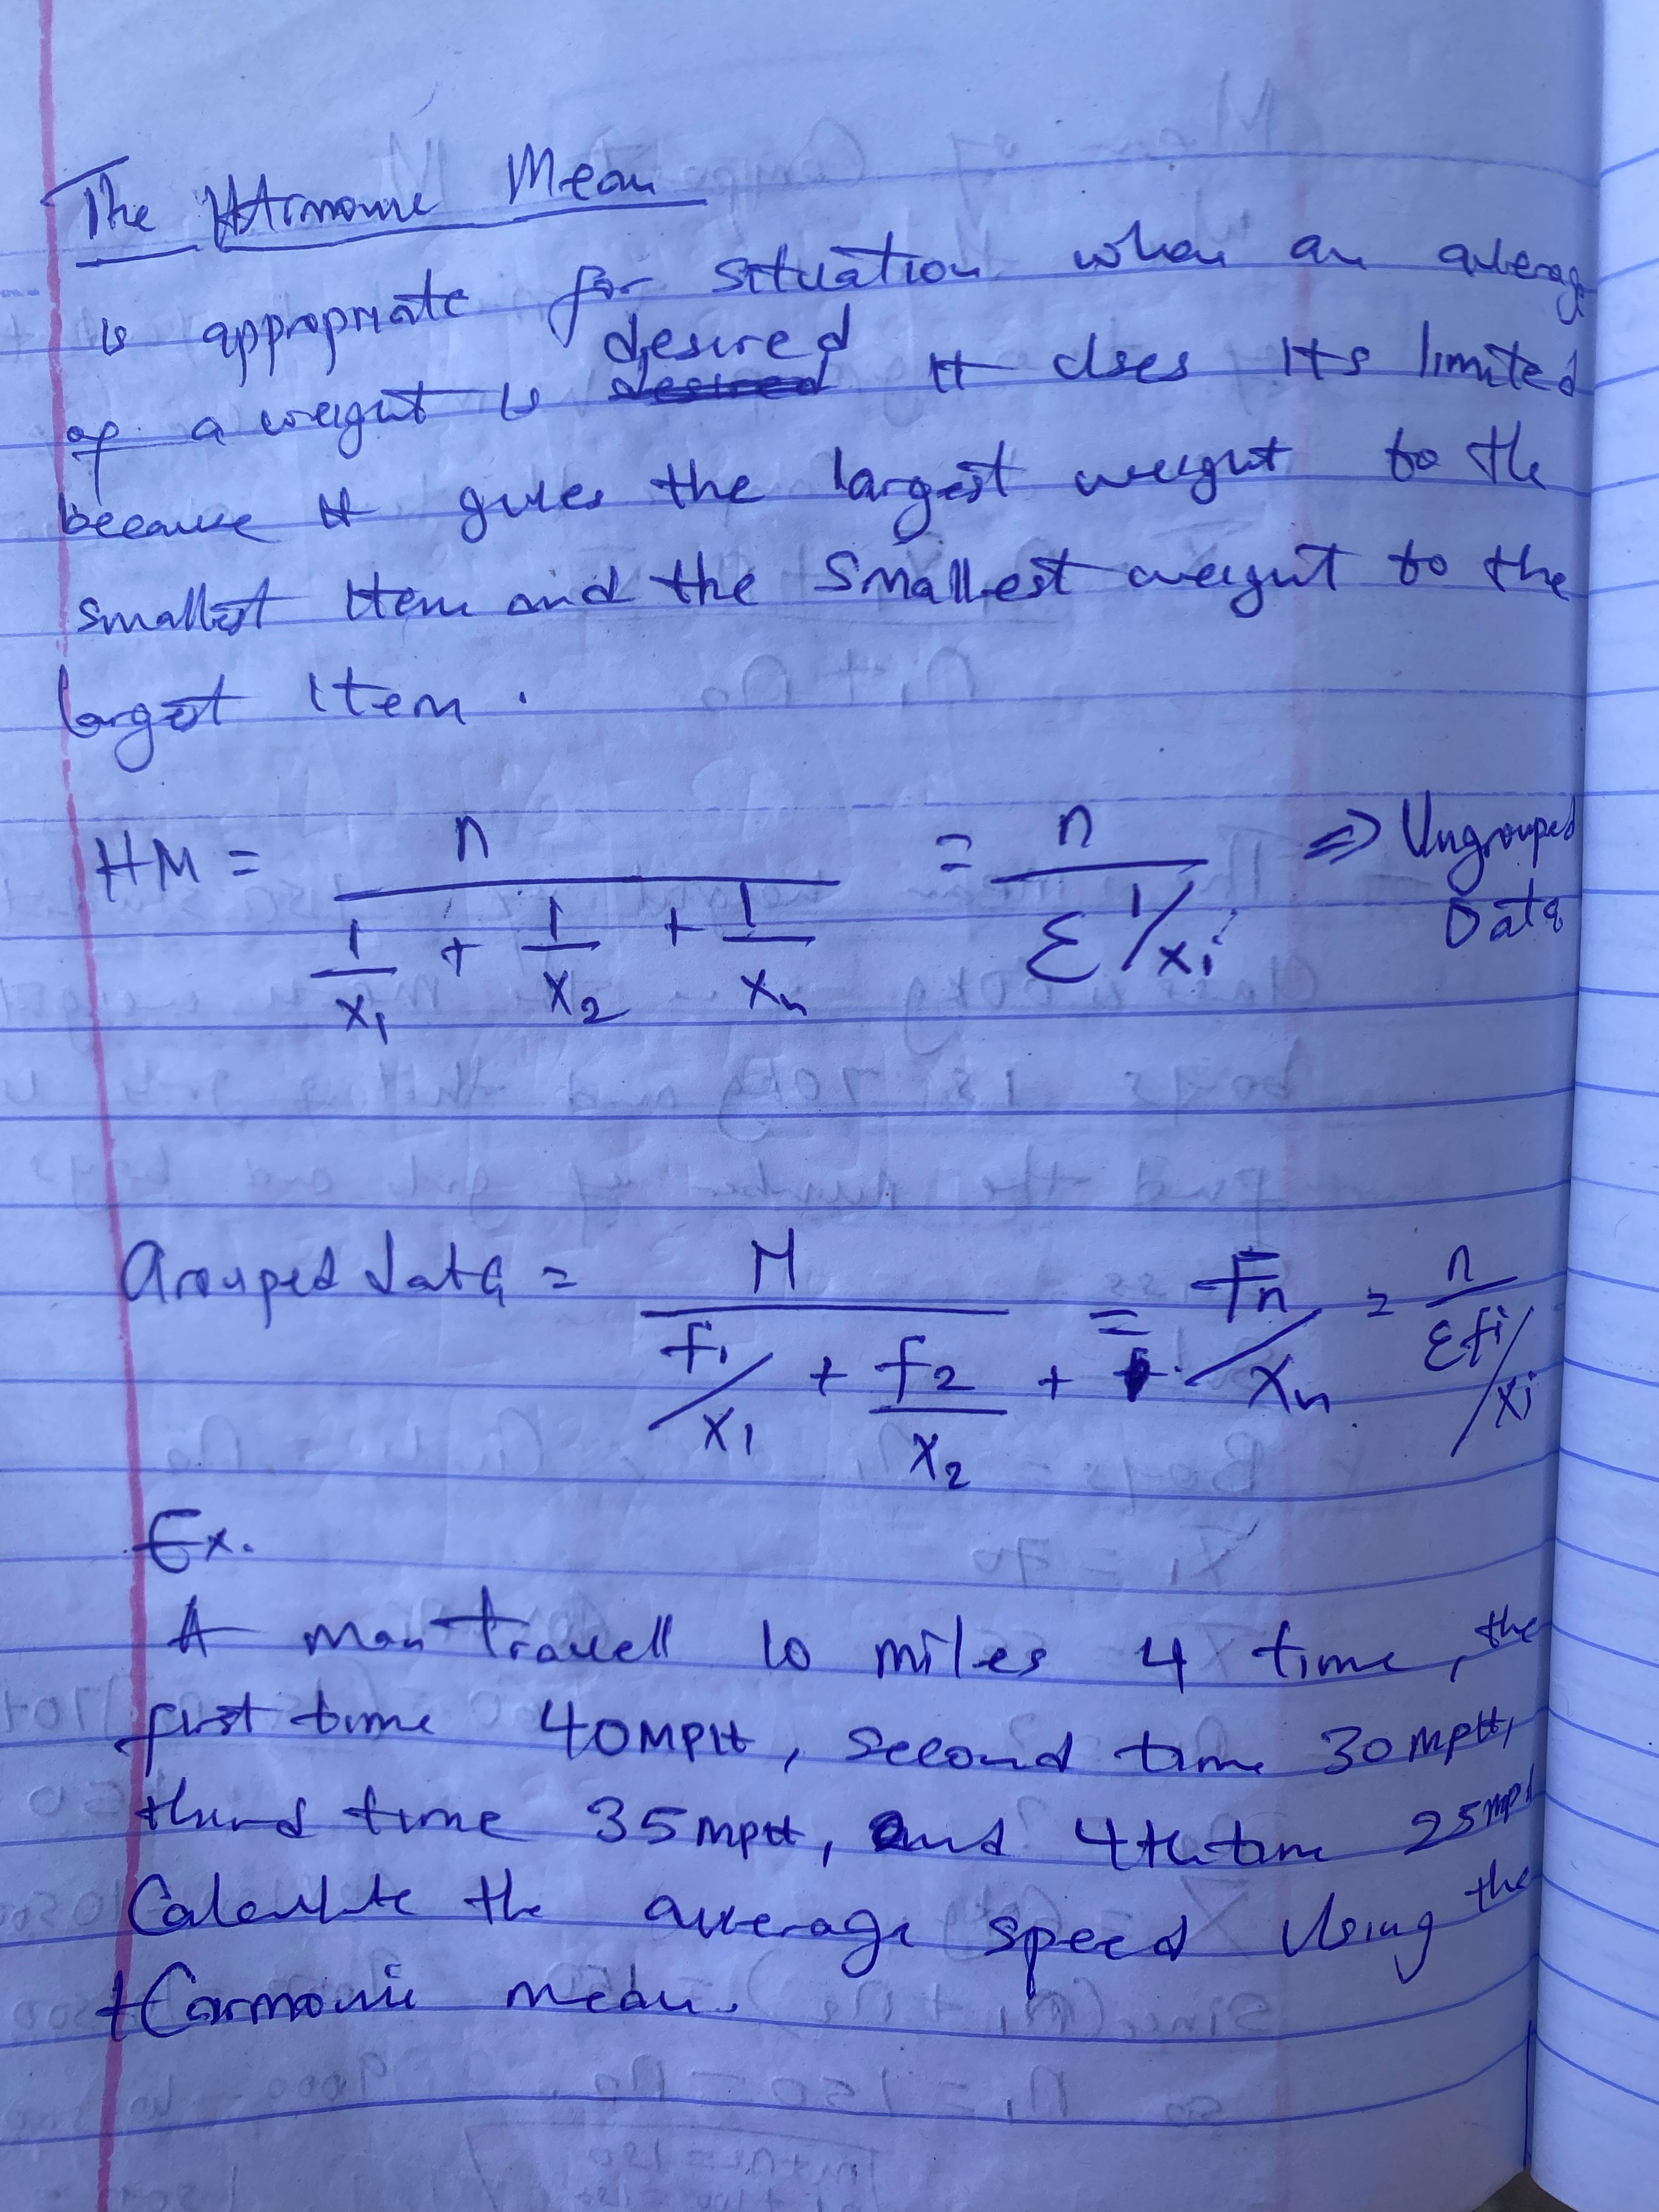 The Harmonic Mean
is appropriate for situation when an average
of a weight is desired desired It uses Its limited
because it gives the largest weight to the
smallest Item and the smallest weight to the
largest item.
HM = n / (1/x₁ + 1/x₂ + 1/xₙ) = n / (Σ 1/xᵢ) ⇒ Ungrouped Data
Grouped data = N / (f₁/x₁ + f₂/x₂ + = Fn/xₙ = n / (Σ fi/xi)
Ex.
A man travell 10 miles 4 time, the
first time 40MPH, second time 30 MPH,
third time 35mpH, and 4th time 25mpH
Calculate the average speed Using the
Harmonic mean.